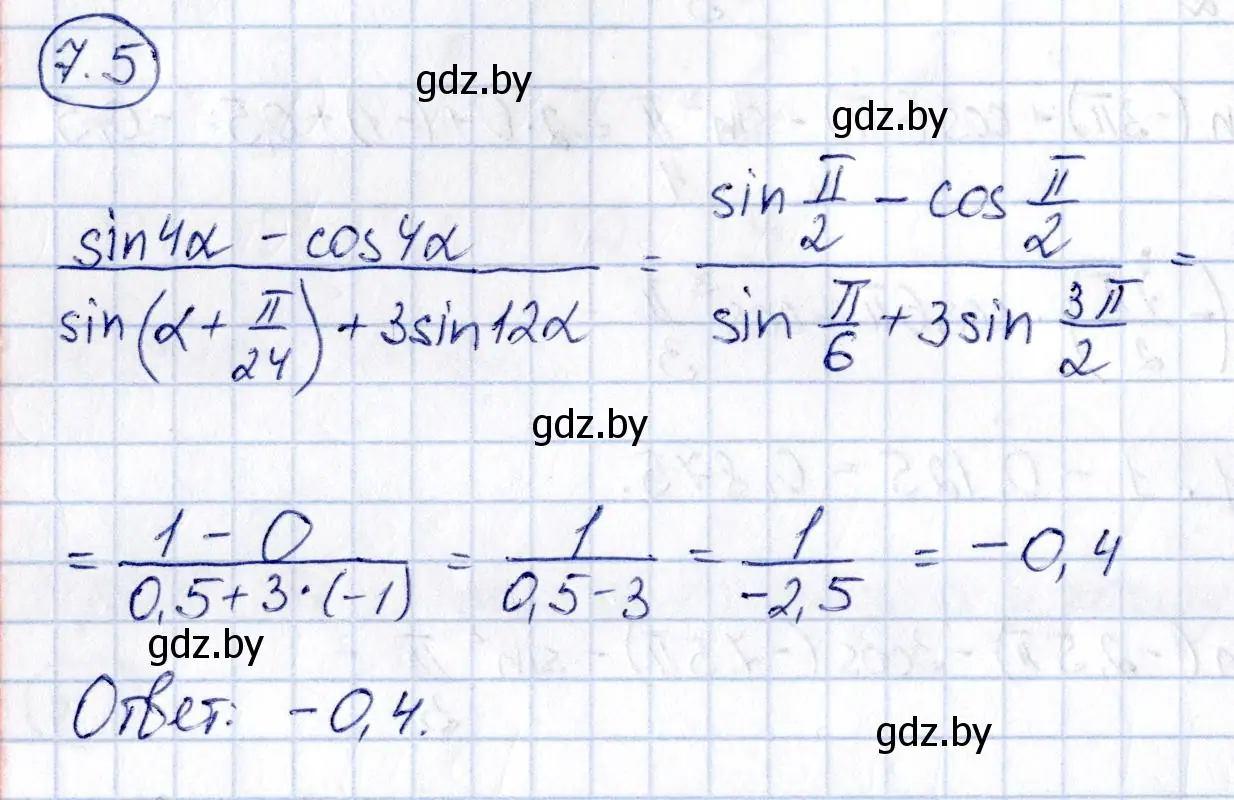 7.5
gdz.by
gdz.by
(sin4α - cos4α)/(sin(α + π/24) + 3sin12α) = (sin π/2 - cos π/2)/(sin π/6 + 3sin 3π/2) =
gdz.by
= (1 - 0)/(0,5 + 3·(-1)) = 1/(0,5 - 3) = 1/(-2,5) = -0,4
gdz.by
Ответ: -0,4.
gdz.by